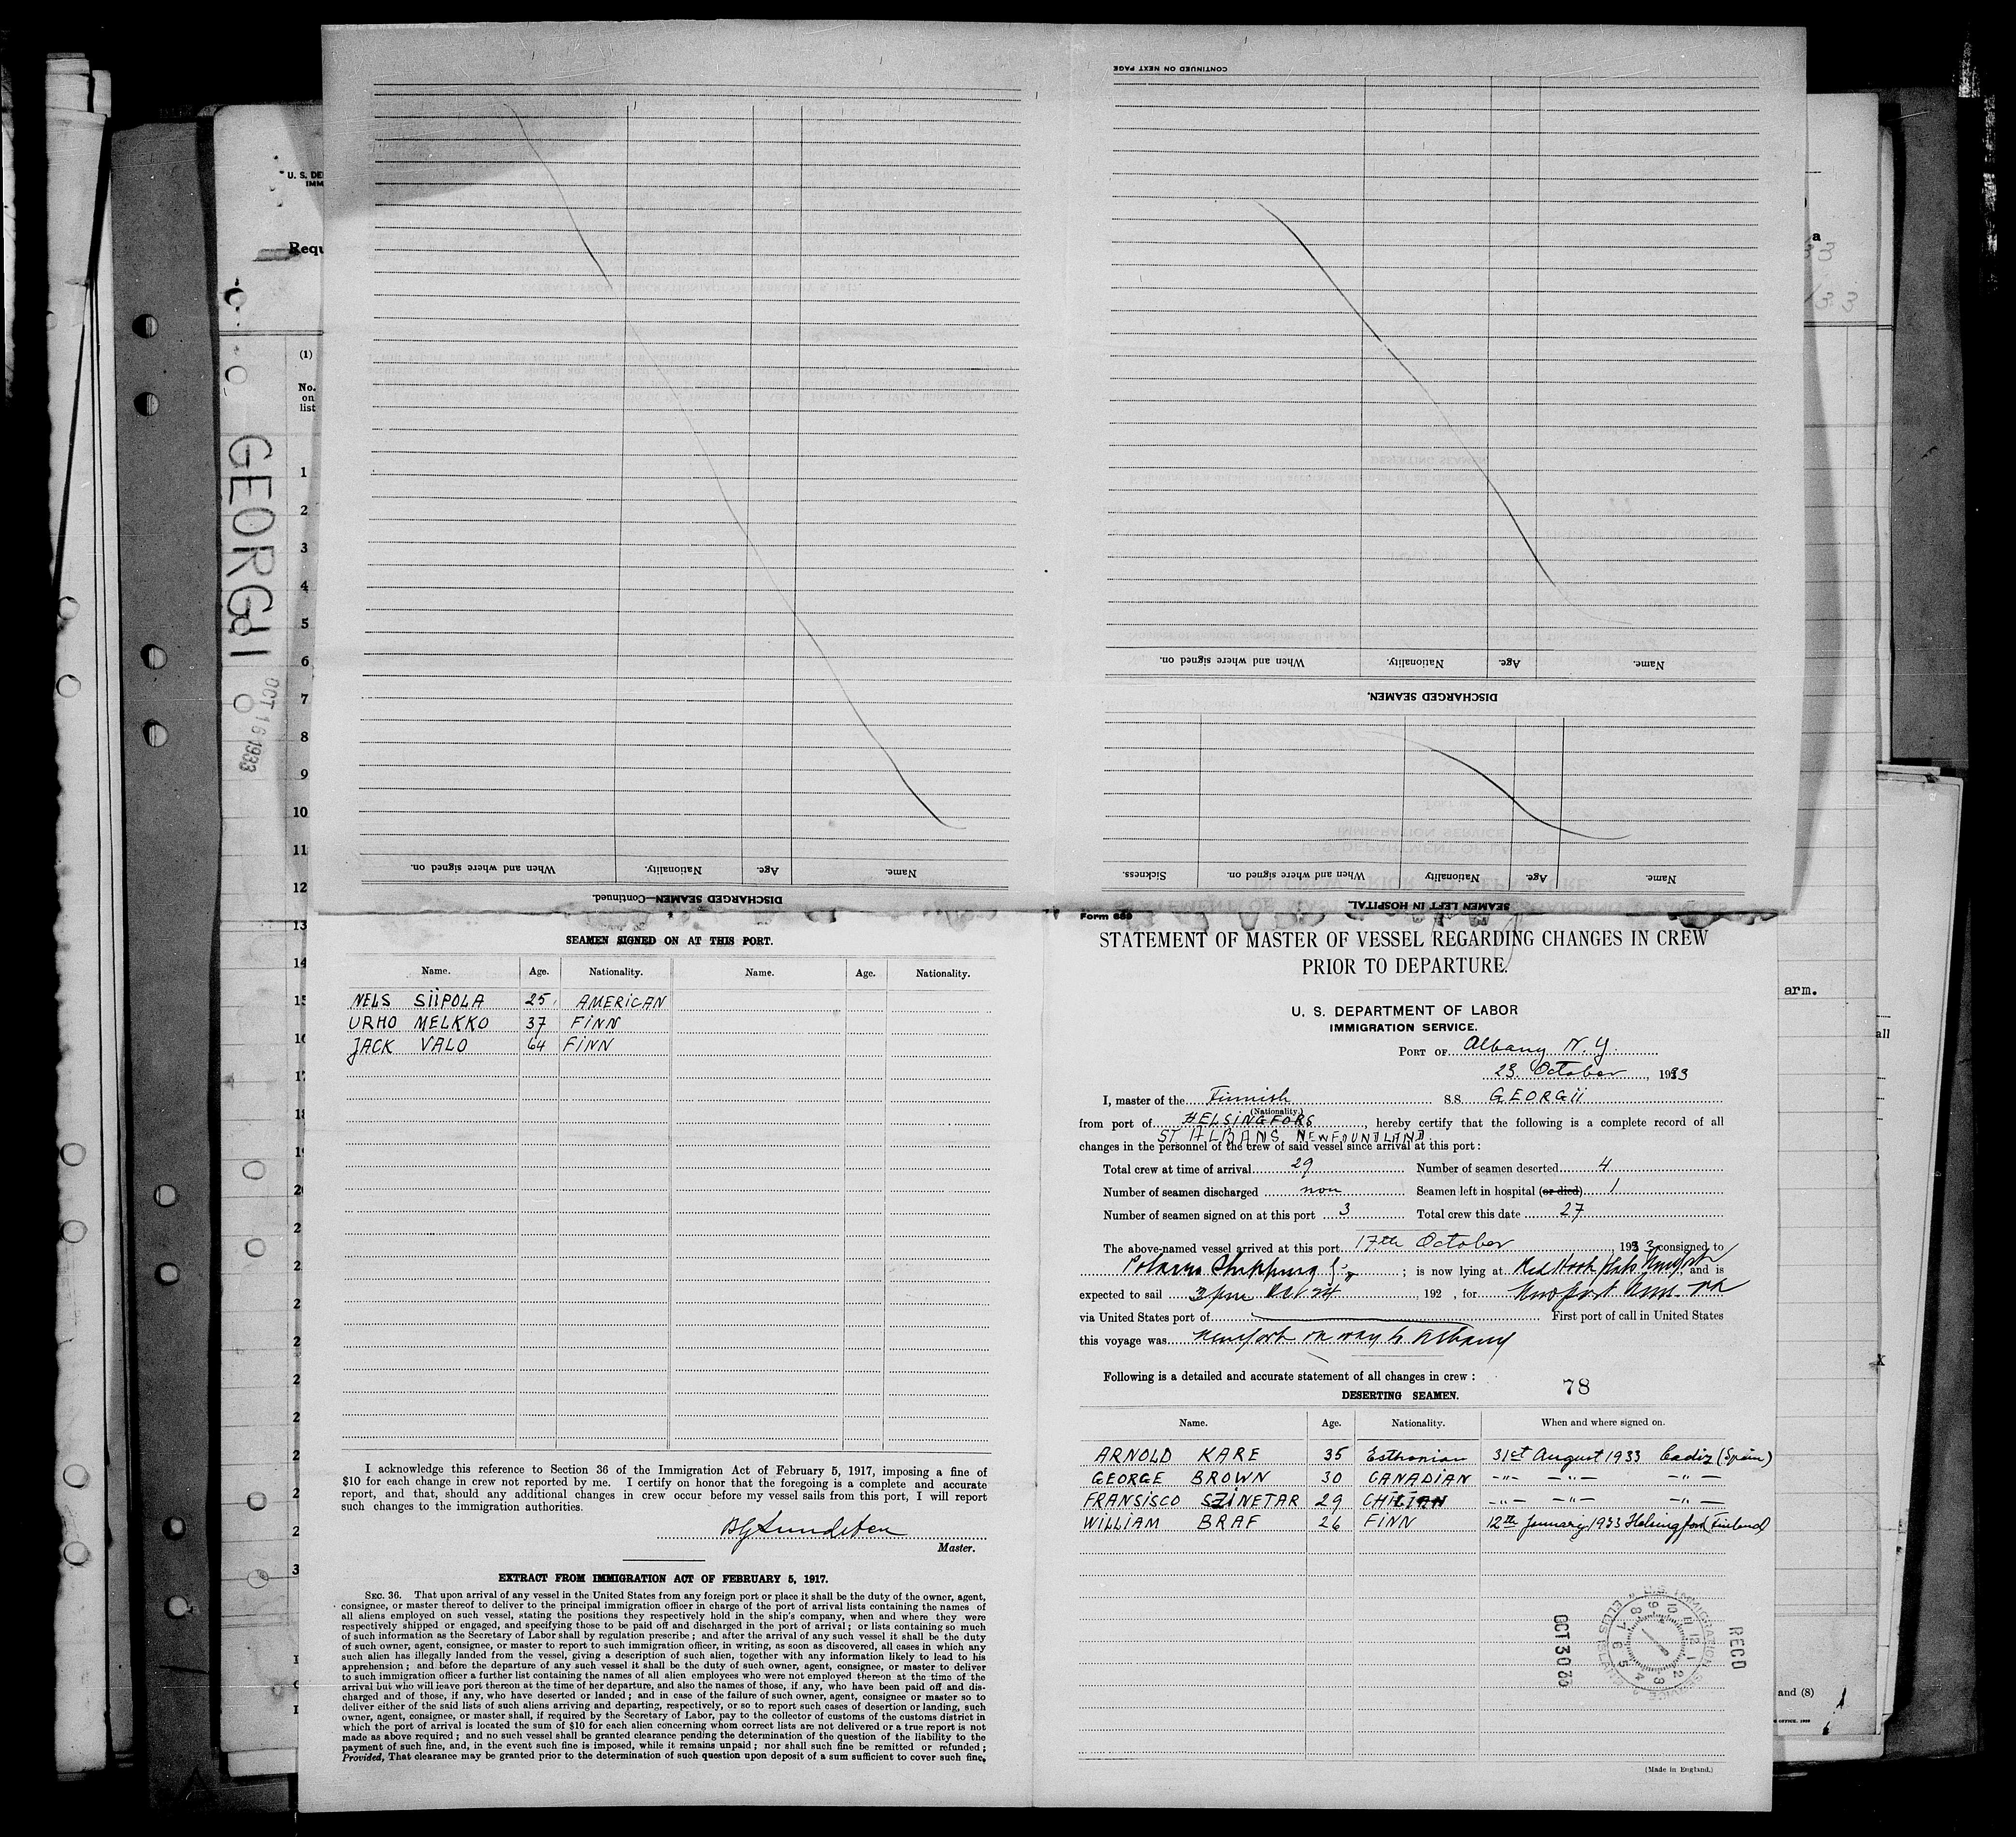 CONTINUED ON NEXT PAGE
When and where signed on.
Nationality.
Age.
Name.
DISCHARGED SEAMEN.
Sickness.
When and where signed on.
Nationality
Age.
Name.
SEAMEN LEFT IN HOSPITAL.
When and where signed on.
Nationality.
Age.
Name.
DISCHARGED SEAMEN—Continued.
U. S. DE
IMM
Requ
(1)
No.
on
list
1
2
3
4
5
6
7
8
9
10
11
12
13
14
GEORGII
OCT 16 1933
SEAMEN SIGNED ON AT THIS PORT.
Name. Age. Nationality. Name. Age. Nationality.
NELS SIIPOLA 25 AMERICAN
URHO MELKKO 37 FINN
JACK VALO 64 FINN
I acknowledge this reference to Section 36 of the Immigration Act of February 5, 1917, imposing a fine of
$10 for each change in crew not reported by me. I certify on honor that the foregoing is a complete and accurate
report, and that, should any additional changes in crew occur before my vessel sails from this port, I will report
such changes to the immigration authorities.
Master.
EXTRACT FROM IMMIGRATION ACT OF FEBRUARY 5, 1917.
SEC. 36. That upon arrival of any vessel in the United States from any foreign port or place it shall be the duty of the owner, agent,
consignee, or master thereof to deliver to the principal immigration officer in charge of the port of arrival lists containing the names of
all aliens employed on such vessel, stating the positions they respectively hold in the ship's company, when and where they were
respectively shipped or engaged, and specifying those to be paid off and discharged in the port of arrival; or lists containing so much
of such information as the Secretary of Labor shall by regulation prescribe; and after the arrival of any such vessel it shall be the duty
of such owner, agent, consignee, or master to report to such immigration officer, in writing, as soon as discovered, all cases in which any
such alien has illegally landed from the vessel, giving a description of such alien, together with any information likely to lead to his
apprehension; and before the departure of any such vessel it shall be the duty of such owner, agent, consignee, or master to deliver
to such immigration officer a further list containing the names of all alien employees who were not employed thereon at the time of the
arrival but who will leave port thereon at the time of her departure, and also the names of those, if any, who have been paid off and dis-
charged and of those, if any, who have deserted or landed; and in case of the failure of such owner, agent, consignee or master so to
deliver either of the said lists of such aliens arriving and departing, respectively, or so to report such cases of desertion or landing, such
owner, agent, consignee, or master shall, if required by the Secretary of Labor, pay to the collector of customs of the customs district in
which the port of arrival is located the sum of $10 for each alien concerning whom correct lists are not delivered or a true report is not
made as above required; and no such vessel shall be granted clearance pending the determination of the question of the liability to the
payment of such fine, and, in the event such fine is imposed, while it remains unpaid; nor shall such fine be remitted or refunded;
Provided, That clearance may be granted prior to the determination of such question upon deposit of a sum sufficient to cover such fine.
Form 689
STATEMENT OF MASTER OF VESSEL REGARDING CHANGES IN CREW
PRIOR TO DEPARTURE.
U. S. DEPARTMENT OF LABOR
IMMIGRATION SERVICE.
PORT OF Albany N.Y.
23 October, 1933
I, master of the Finnish S.S. GEORGII
(Nationality.)
from port of HELSINGFORS, hereby certify that the following is a complete record of all
ST ALBANS NEWFOUNDLAND.
changes in the personnel of the crew of said vessel since arrival at this port:
Total crew at time of arrival 29 Number of seamen deserted 4
Number of seamen discharged non Seamen left in hospital (or died) 1
Number of seamen signed on at this port 3 Total crew this date 27
The above-named vessel arrived at this port 17th October, 1933 consigned to
Shipping; is now lying at Red Hook flats and is
expected to sail 3 pm Oct 24, 192 , for
via United States port of First port of call in United States
this voyage was Newyork on way to Albany
Following is a detailed and accurate statement of all changes in crew:
78
DESERTING SEAMEN.
Name. Age. Nationality. When and where signed on.
ARNOLD KARE 35 Esthonian 31st August 1933 Cadiz (Spain)
GEORGE BROWN 30 CANADIAN -"- -"- -"-
FRANSISCO SZINETAR 29 CHILIAN -"- -"- -"-
WILLIAM BRAF 26 FINN 12th January 1933 Helsingfors (Finland)
RECD
OCT 30
U.S. IMMIGRATION SERVICE
ELLIS ISLAND
(Made in England.)
arm.
all
X
and (8)